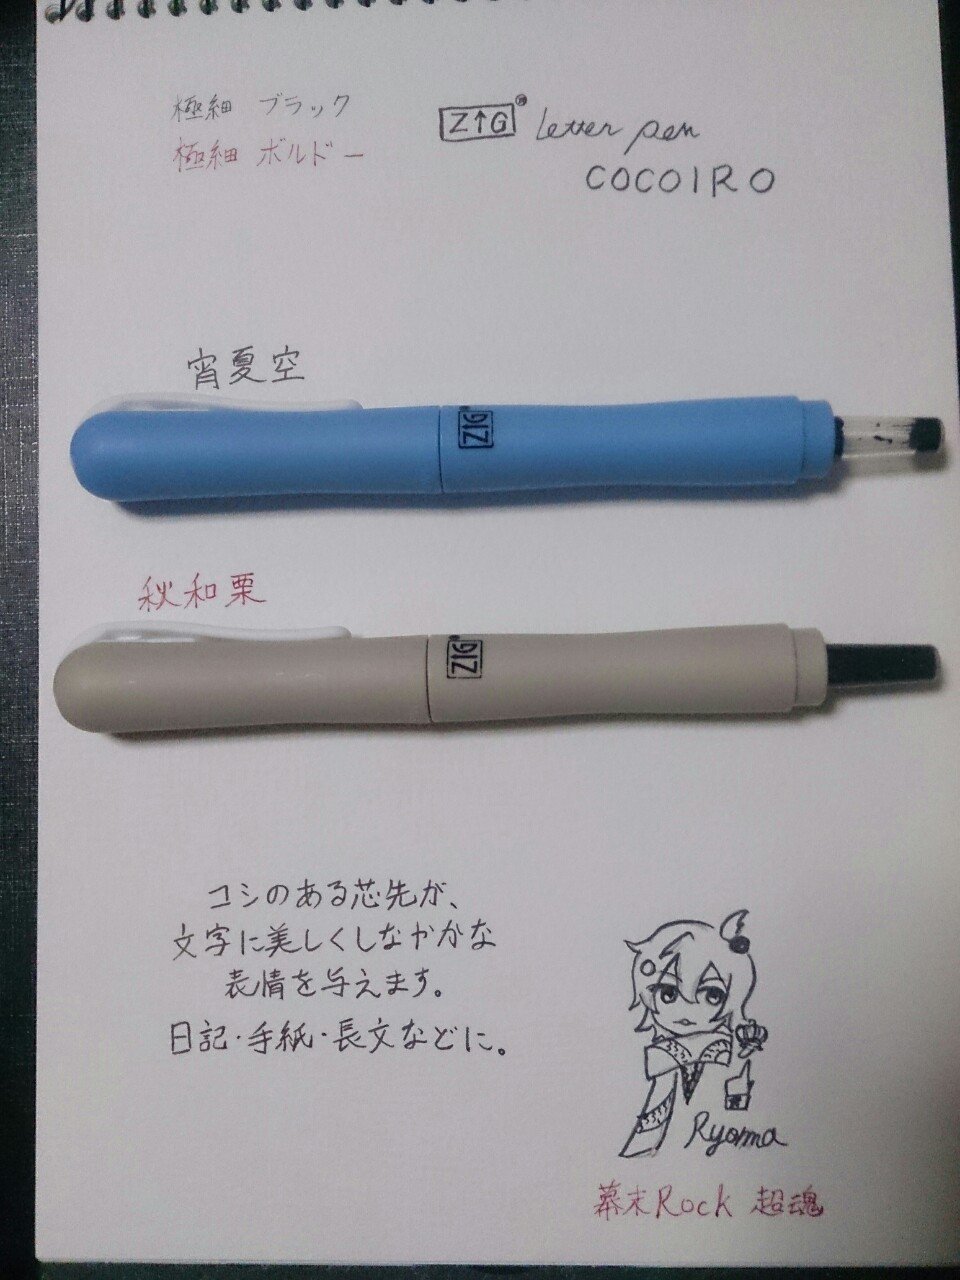 極細 ブラック
極細 ボルドー
ZIG® letter pen
COCOIRO
宵夏空
ZIG
秋和栗
ZIG
コシのある芯先が、
文字に美しくしなやかな
表情を与えます。
日記・手紙・長文などに。
Ryoma
幕末Rock 超魂